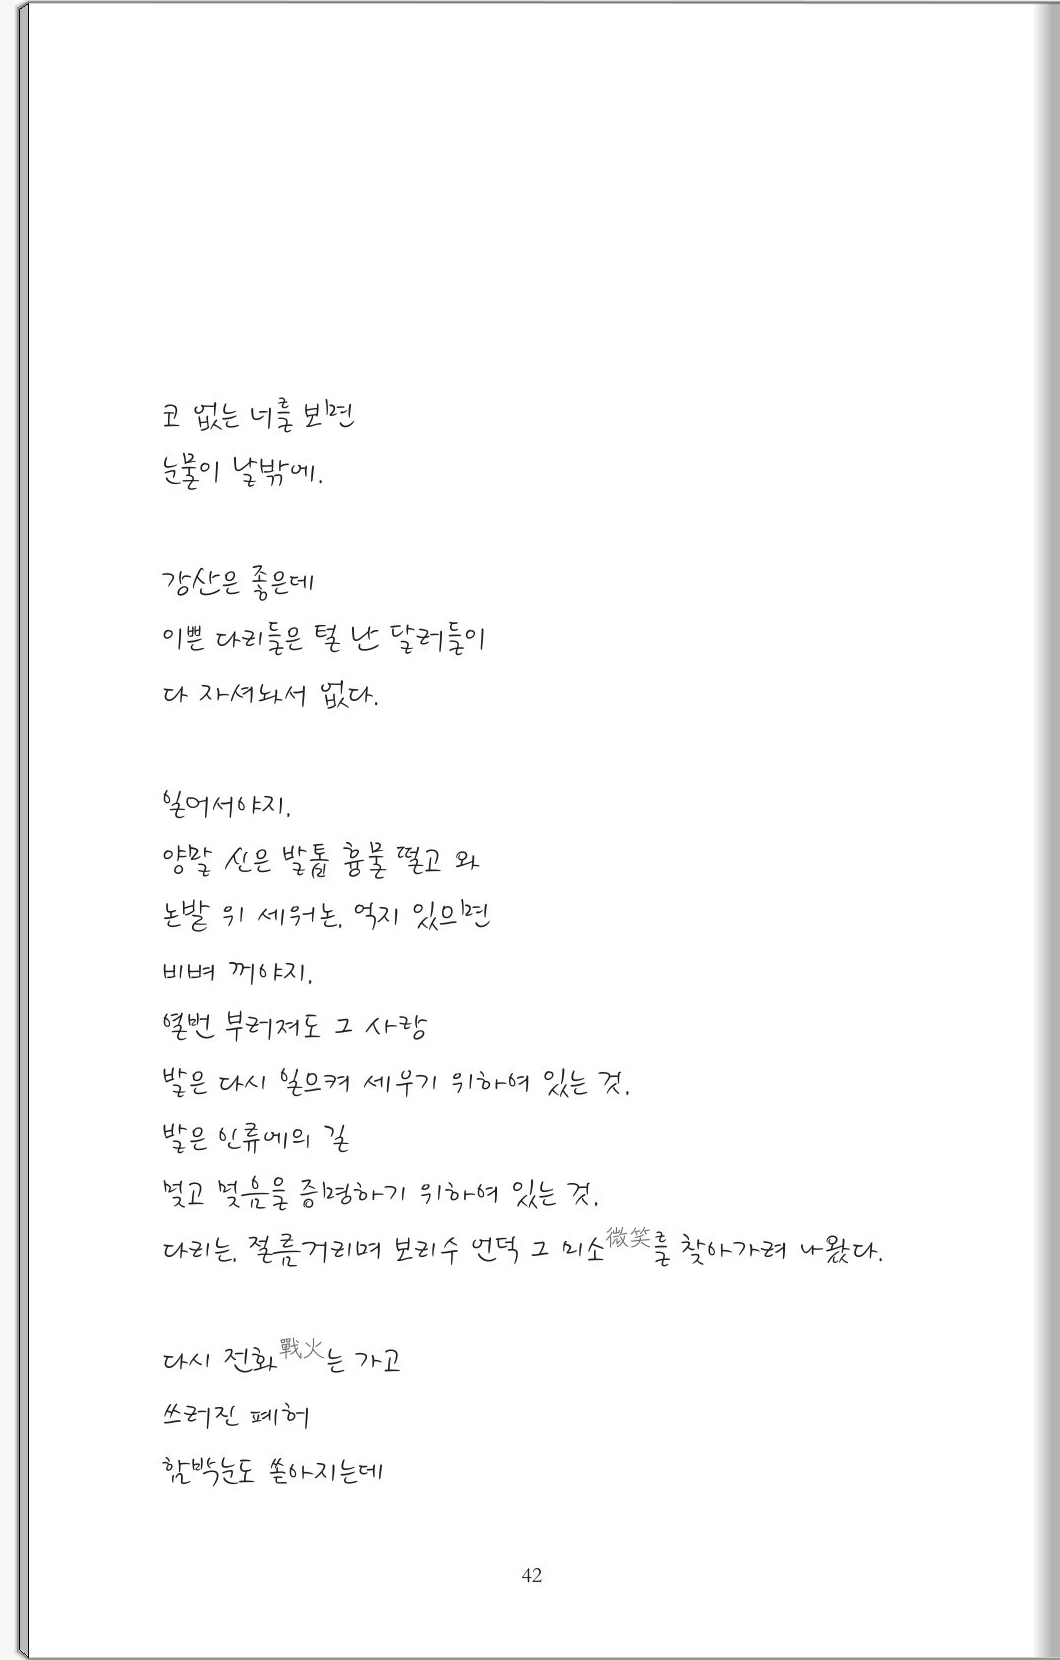 코 없는 너를 보면
눈물이 날밖에.
강산은 좋은데
이쁜 다리들은 털 난 달러들이
다 자셔놔서 없다.
일어서야지.
양말 신은 발톱 흉물 떨고 와
논밭 위 세워논, 억지 있으면
비벼 꺼야지.
열번 부러져도 그 사랑
발은 다시 일으켜 세우기 위하여 있는 것,
발은 인류에의 길
멎고 멎음을 증명하기 위하여 있는 것,
다리는, 절름거리며 보리수 언덕 그 미소微笑를 찾아가려 나왔다.
다시 전화戰火는 가고
쓰러진 폐허
함박눈도 쏟아지는데
42